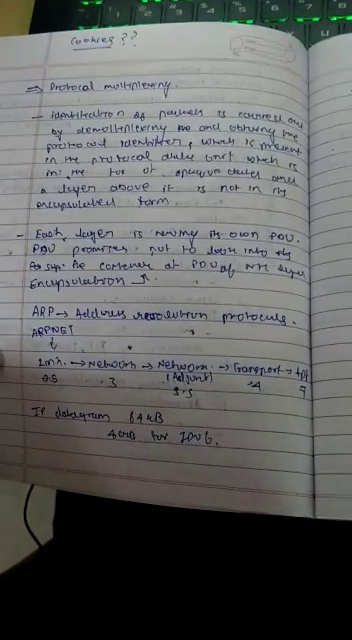 Cookies??
⇒ Protocol multiplexing.
- identification of packets is carried out
by demultiplexing the and obtaining the
protocol identifier, which is present
in the protocol data unit which is
in the for of active data and
a layer above it is not in its
encapsulated form.
- Each layer is having its own PDU.
PDU promises not to look into the
the container of PDU of Nth layer
Encapsulation
ARP → Address resolution protocols.
ARPNET
↓
Link → Network → Network → Transport → 
2.5 3 (Adjunt) 4 7
3.5
IP datagram 64 kB
4GB for IPv6.